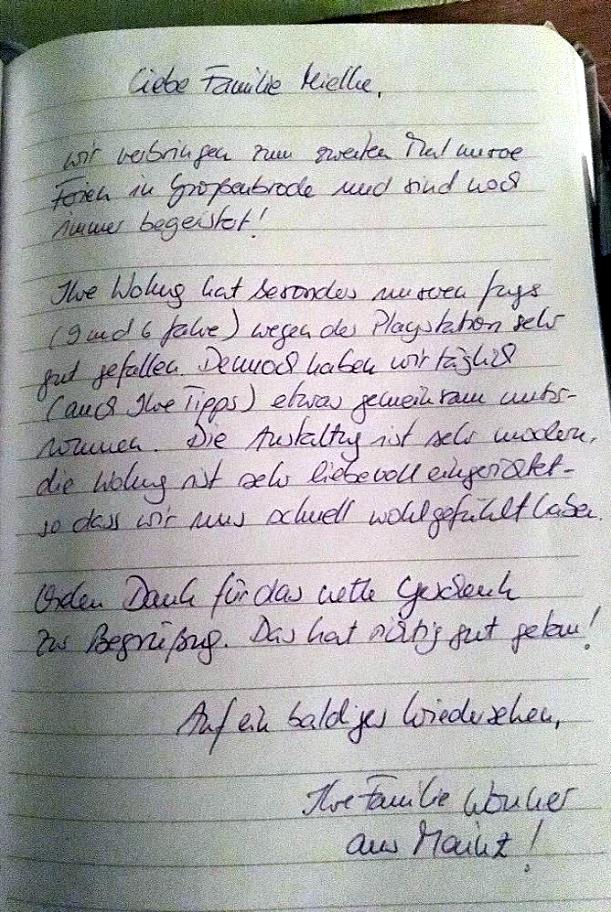 Liebe Familie Mielke,
wir verbringen zum zweiten Mal unsere
Ferien in Großenbrode und sind noch
immer begeistert!
Ihre Wohnung hat besonders unseren Jungs
(9 und 6 Jahre) wegen der Playstation sehr
gut gefallen. Dennoch haben wir täglich
(auch Ihre Tipps) etwas gemeinsam unter-
nommen. Die Ausstattung ist sehr modern,
die Wohnung ist sehr liebevoll eingerichtet -
so dass wir uns schnell wohlgefühlt haben.
Vielen Dank für das nette Geschenk
zur Begrüßung. Das hat richtig gut getan!
Auf ein baldiges Wiedersehen,
Ihre Familie
aus Mainz!